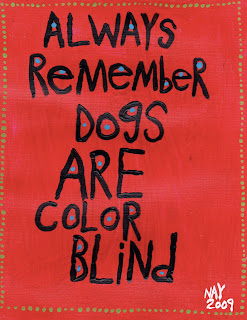 ALWAYS
RemembeR
DOgS
ARE
COLOR
BLiNd
NAY
2009